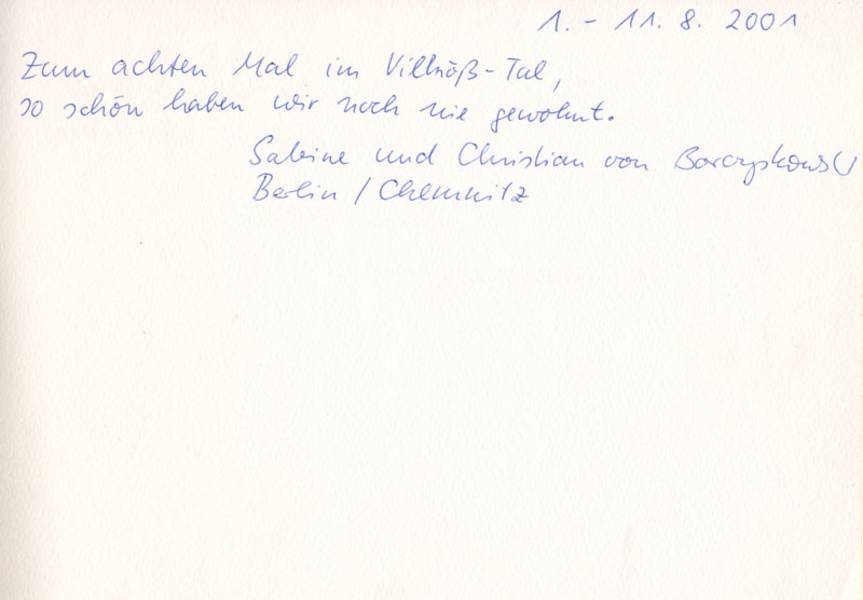 1. - 11. 8. 2001
Zum achten Mal im Villnöß-Tal,
so schön haben wir noch nie gewohnt.
Sabine und Christian von Borczyskowski
Berlin / Chemnitz